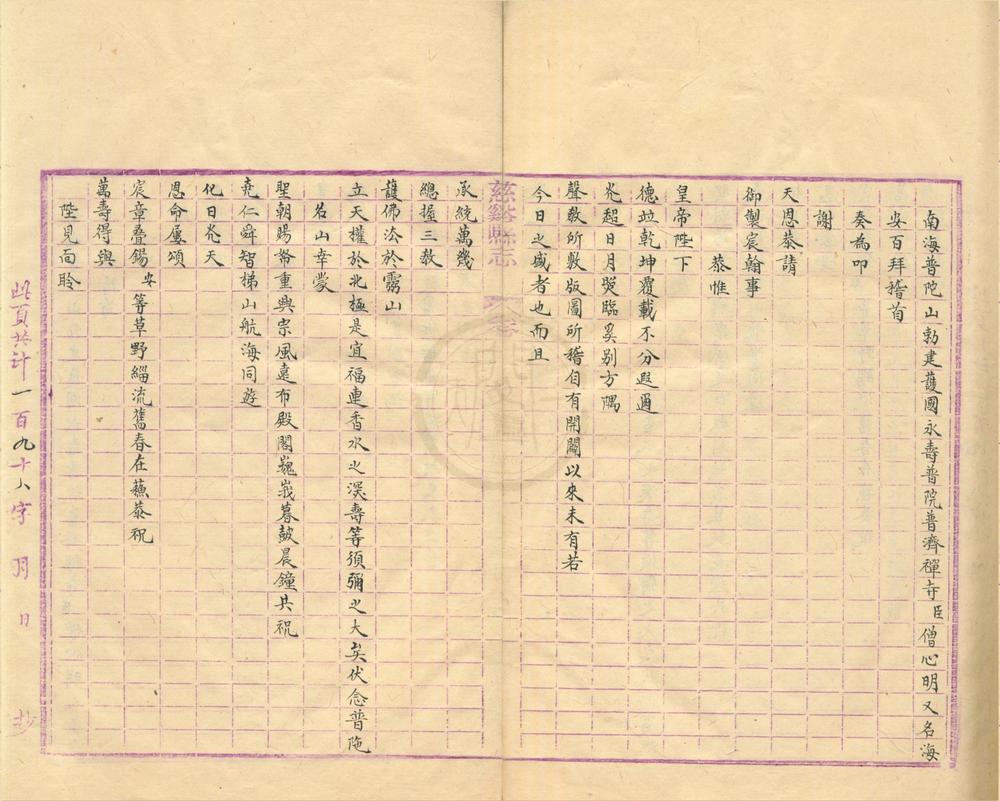 南海普陀山勅建護國永壽普陀普濟禪寺臣僧心明又名海
安百拜稽首
奏為叩
謝
天恩恭請
御製宸翰事
恭惟
皇帝陛下
德竝乾坤覆載不分遐邇
光超日月煚臨奚别方隅
聲敎所敷版圖所稽自有開闢以來未有若
今日之盛者也而且
慈谿縣志
卷
承統萬幾
總握三敎
護佛法於靈山
立天權於北極是宜福連香水之深壽等須彌之大矣伏念普陁
名山幸蒙
聖朝賜帑重興宗風遠布殿閣巍峩暮皷晨鐘共祝
堯仁舜智梯山航海同遊
化日光天
恩命屢頌
宸章疊錫安等草野緇流舊春在蘇恭祝
萬壽得與
陛見面聆
此頁共計一百九十八字 月 日 抄